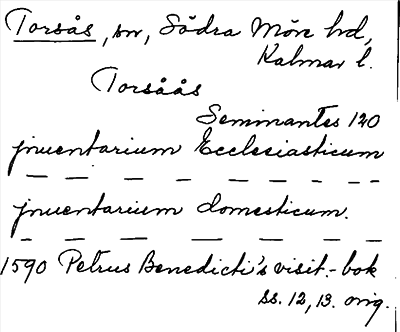 Torsås, sn, Södra Möre hd,
Kalmar l.
Torsåås
Seminantes 120
jnuentarium Ecclesiasticum
— — — — — — — —
jnuentarium domesticum.
— — — — — — —
1590 Petrus Benedicti's visit.-bok
ss. 12, 13. orig.